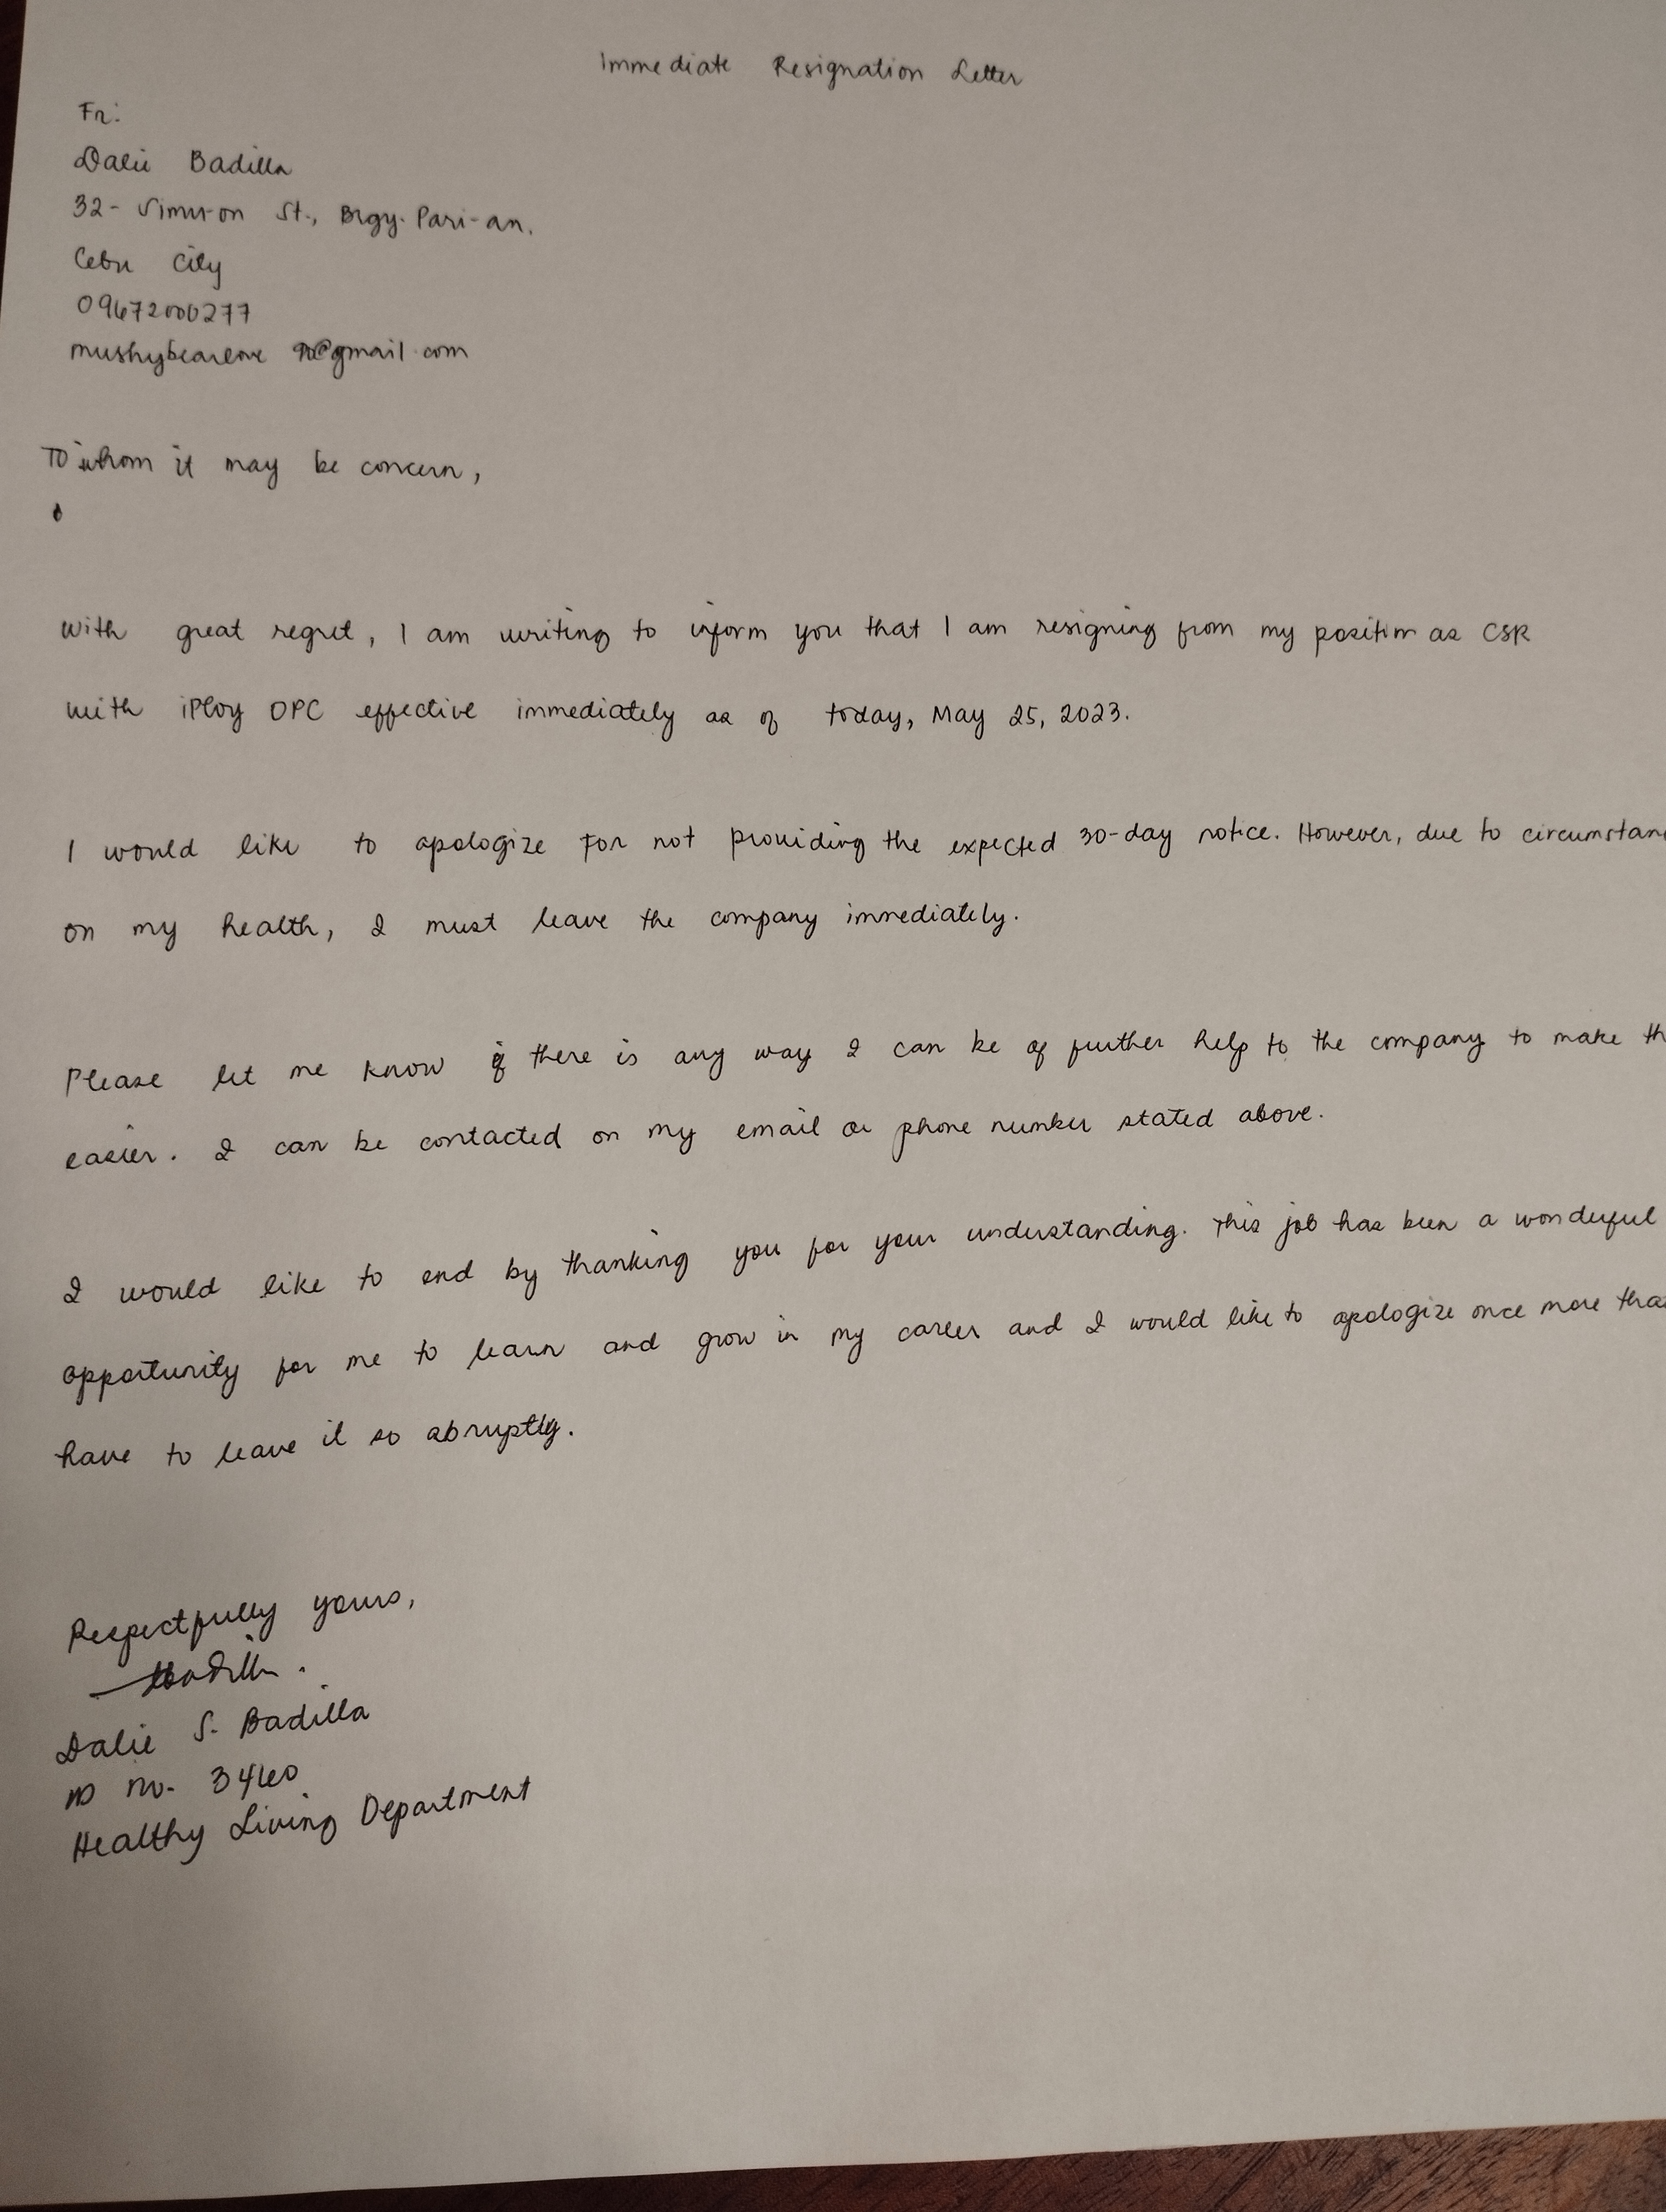 Immediate Resignation Letter
Fr:
Dalie Badilla
32- St., Brgy. Pari-an.
Cebu City
09672000277
@gmail.com
To whom it may be concern,
With great regret, I am writing to inform you that I am resigning from my position as CSR
with iPloy OPC effective immediately as of today, May 25, 2023.
I would like to apologize for not providing the expected 30-day notice. However, due to circumstan
on my health, I must leave the company immediately.
Please let me know if there is any way I can be of further help to the company to make th
easier. I can be contacted on my email or phone number stated above.
I would like to end by thanking you for your understanding. This job has been a wonderful
opportunity for me to learn and grow in my career and I would like to apologize once more tha
have to leave it so abruptly.
Respectfully yours,
Dalie S. Badilla
ID no. 3460
Healthy Living Department